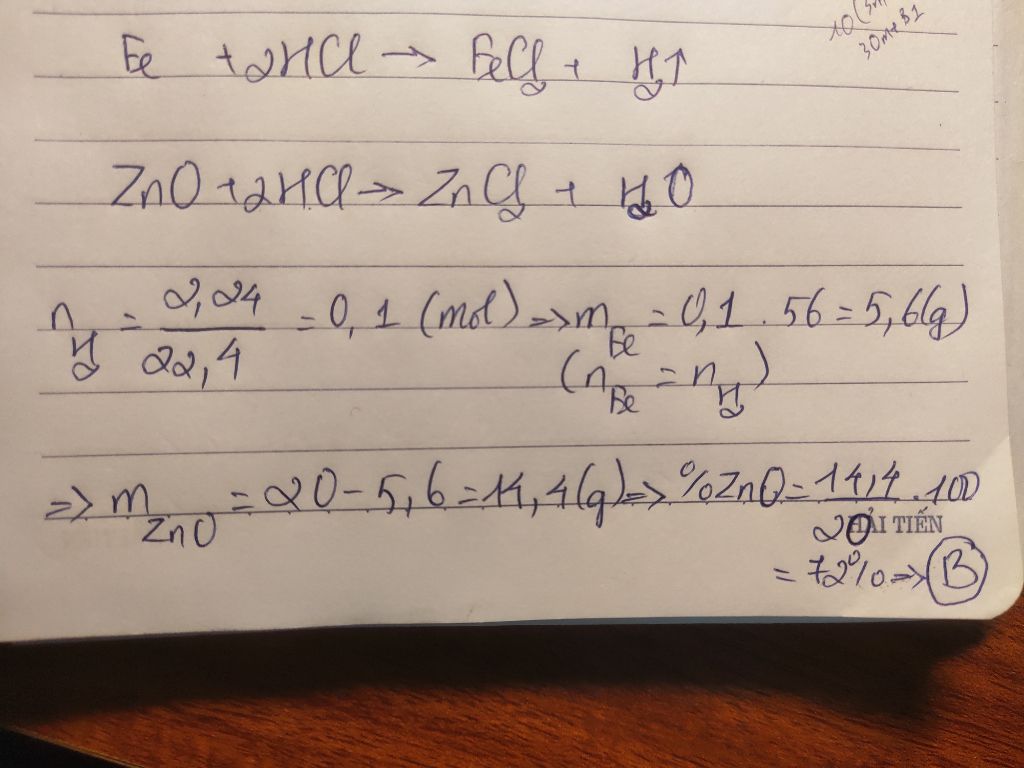 Fe + 2HCl → FeCl₂ + H₂↑
ZnO + 2HCl → ZnCl₂ + H₂O
n_H₂ = 2,24 / 22,4 = 0,1 (mol) => m_Fe = 0,1 . 56 = 5,6(g)
(n_Fe = n_H₂)
=> m_ZnO = 20 - 5,6 = 14,4(g) => %ZnO = 14,4 / 20 . 100
HẢI TIẾN
= 72% => B